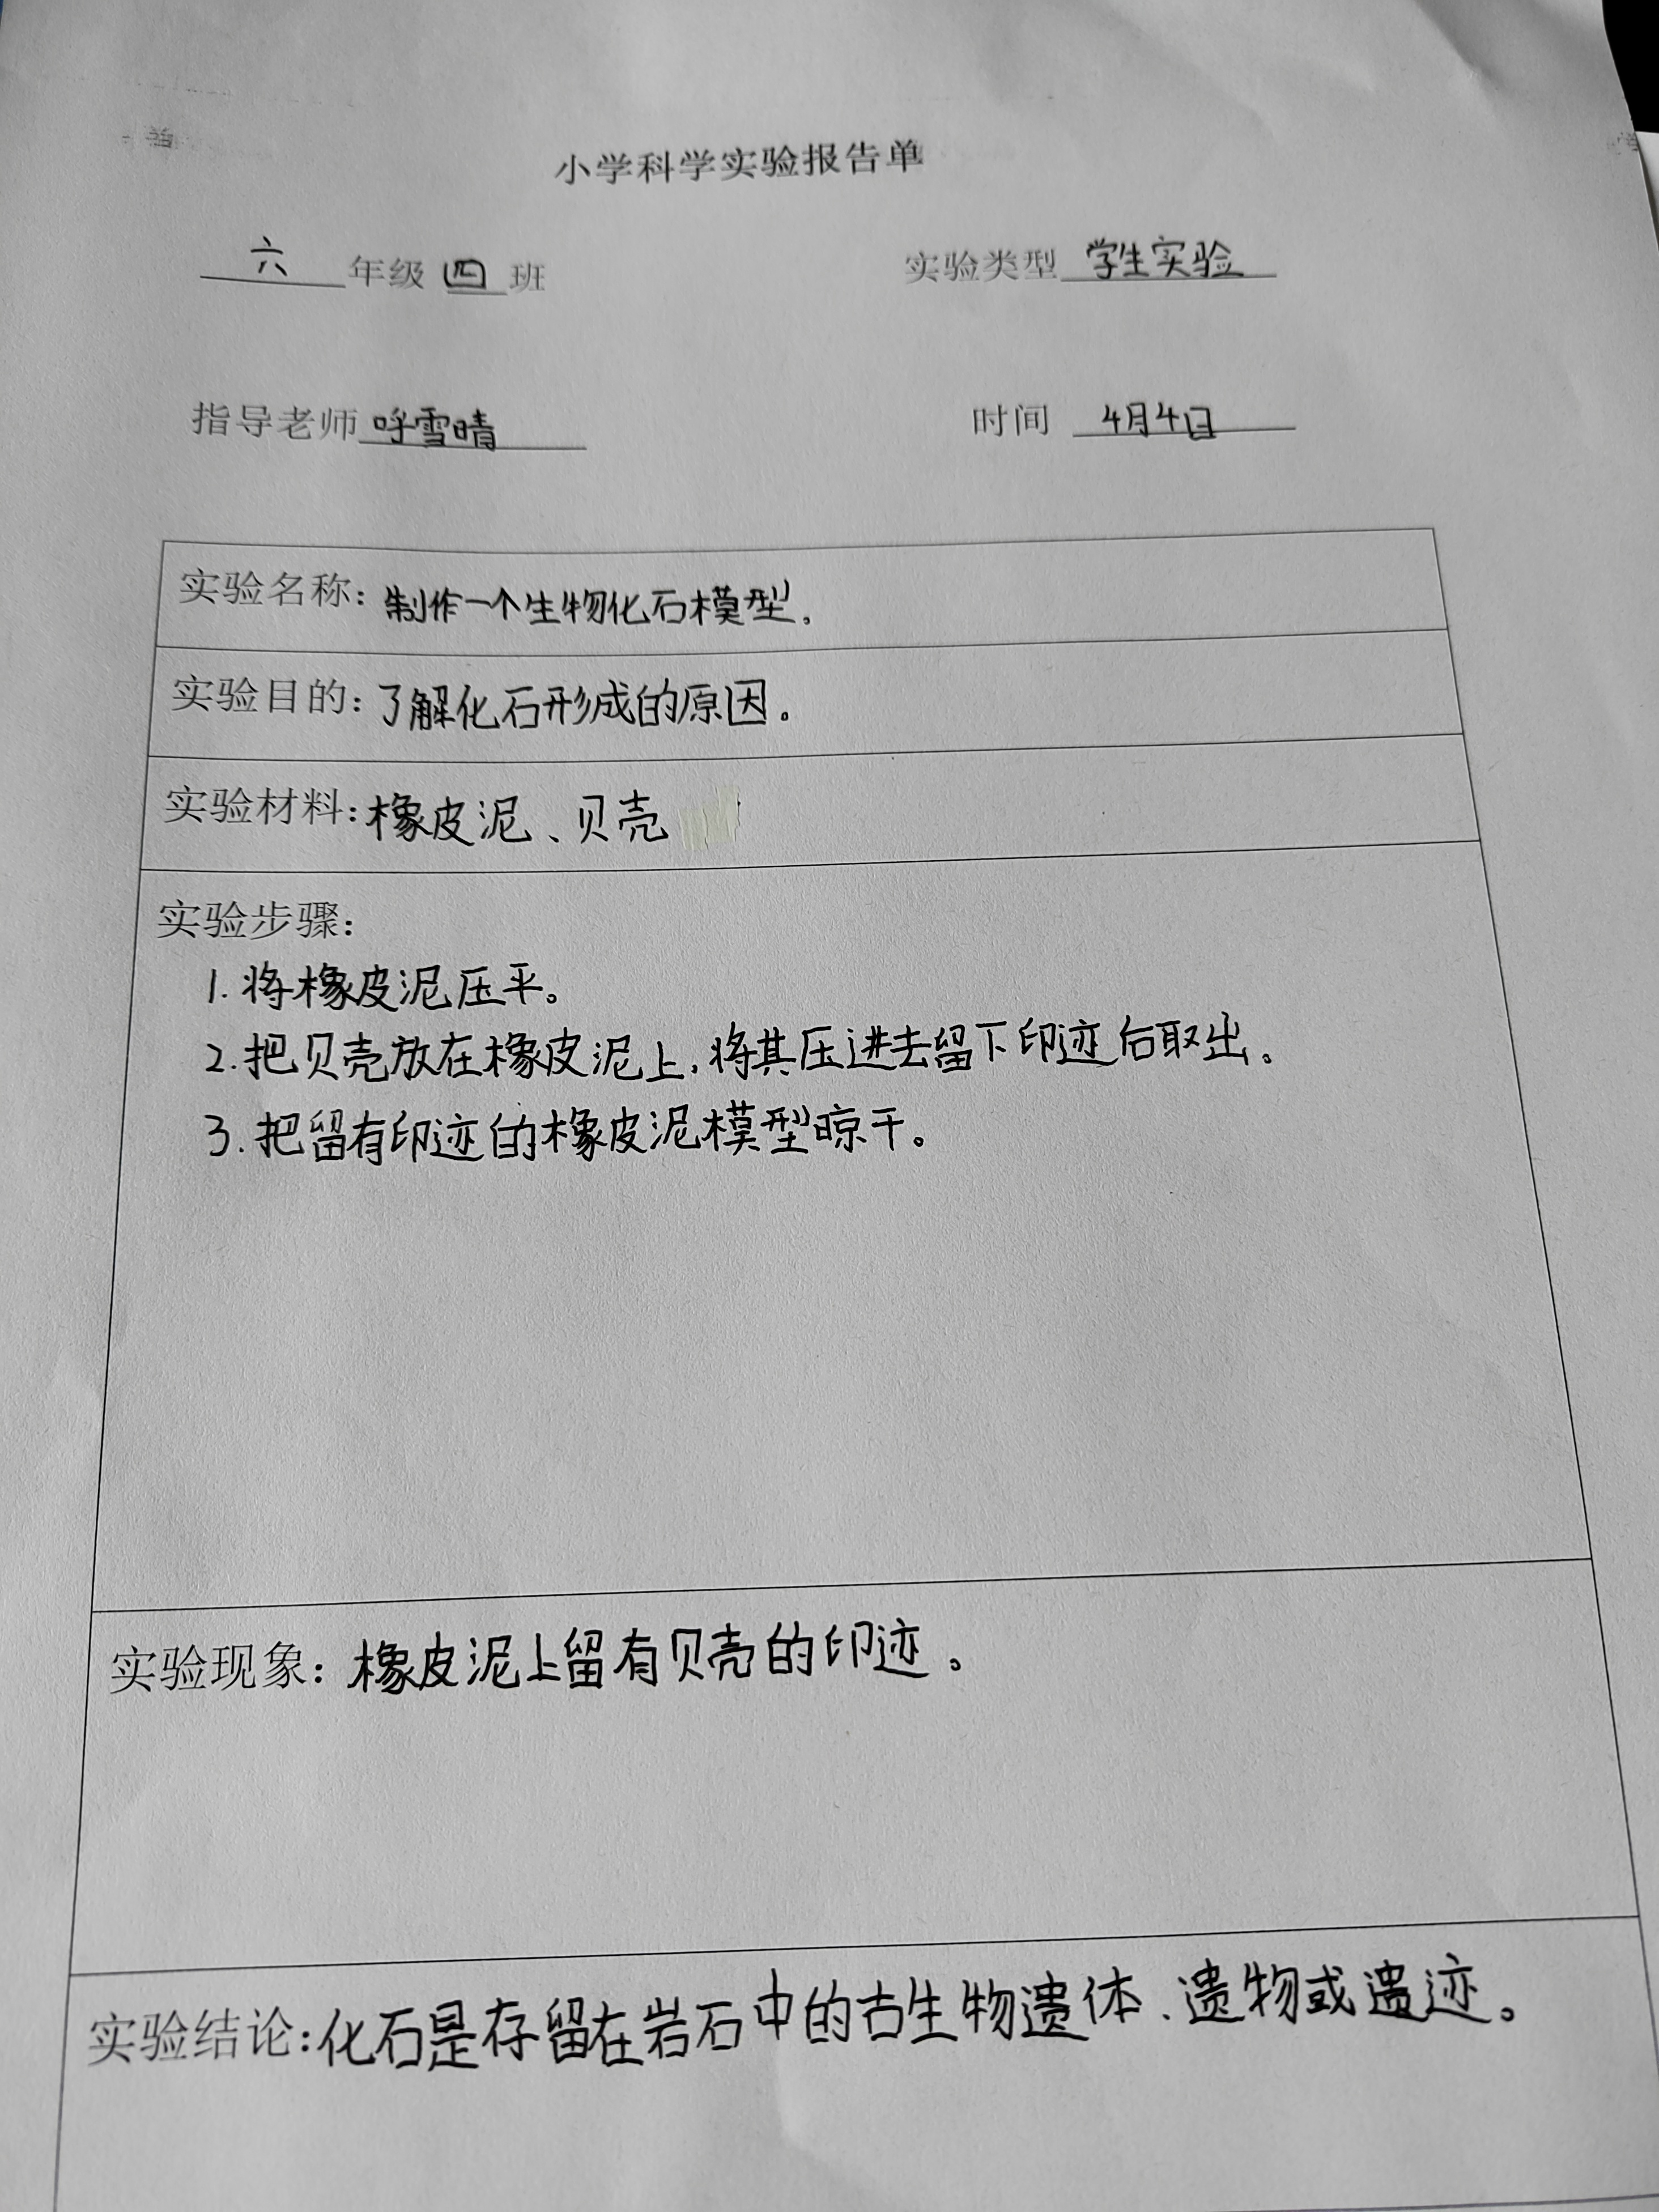 小学科学实验报告单
六年级四班 实验类型 学生实验
指导老师 呼雪晴 时间 4月4日
实验名称：制作一个生物化石模型。
实验目的：了解化石形成的原因。
实验材料：橡皮泥、贝壳
实验步骤：
1.将橡皮泥压平。
2.把贝壳放在橡皮泥上,将其压进去留下印迹后取出。
3.把留有印迹的橡皮泥模型晾干。
实验现象：橡皮泥上留有贝壳的印迹。
实验结论：化石是存留在岩石中的古生物遗体、遗物或遗迹。